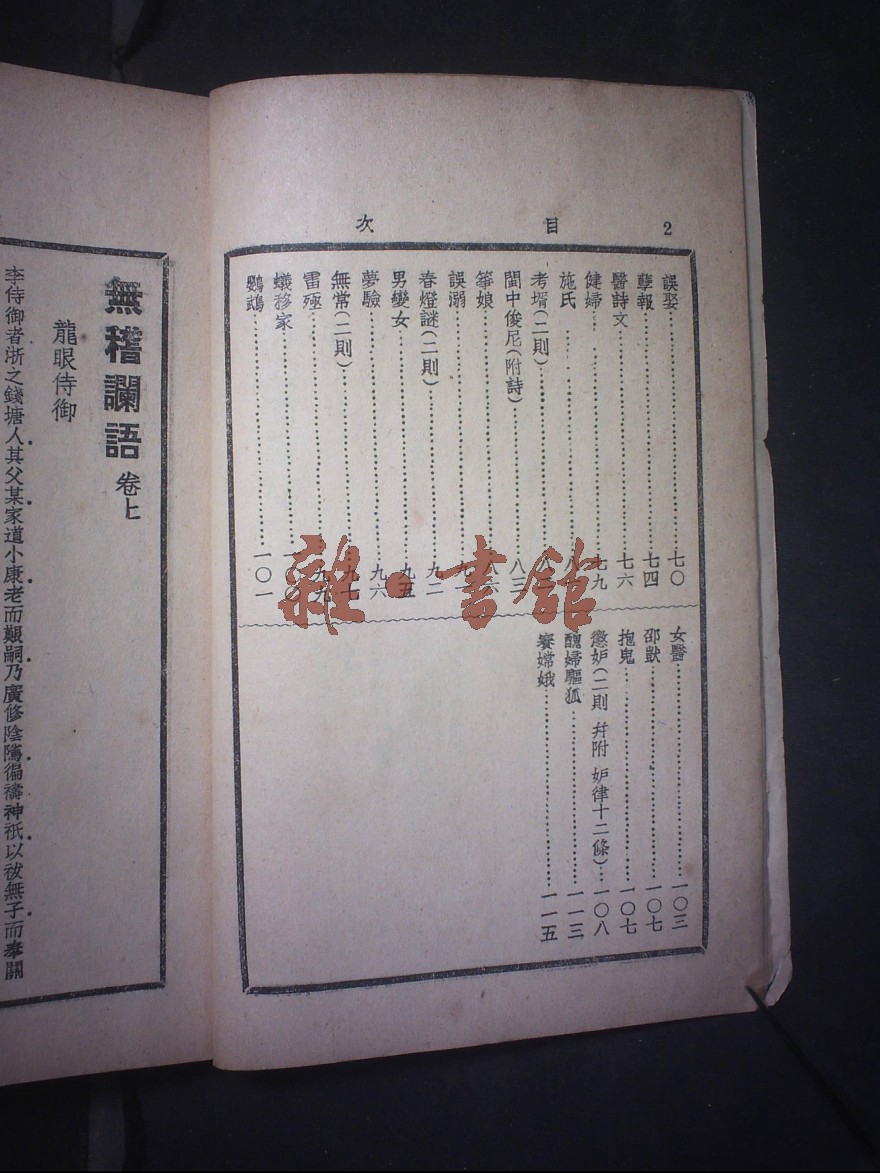 2
目次
誤娶……七〇
孽報……七四
醫詩文……七六
健婦……七九
施氏……八
考壻(二則)……八
閩中俊尼(附詩)……八三
箏娘……八六
誤溺……九
春燈謎(二則)……九二
男變女……九五
夢驗……九六
無常(二則)……九七
雷殛……九九
蟻移家……一〇
鸚鵡……一〇一
女醫……一〇三
邵獃……一〇七
抱鬼……一〇七
懲妒(二則 幷附 妒律十二條)……一〇八
醜婦驅狐……一一三
賽嫦娥……一一五
雜·書館
無稽讕語 卷上
龍眼侍御
李侍御者浙之錢塘人其父某家道小康老而艱嗣乃廣修陰隲徧禱神祇以祓無子而奉關